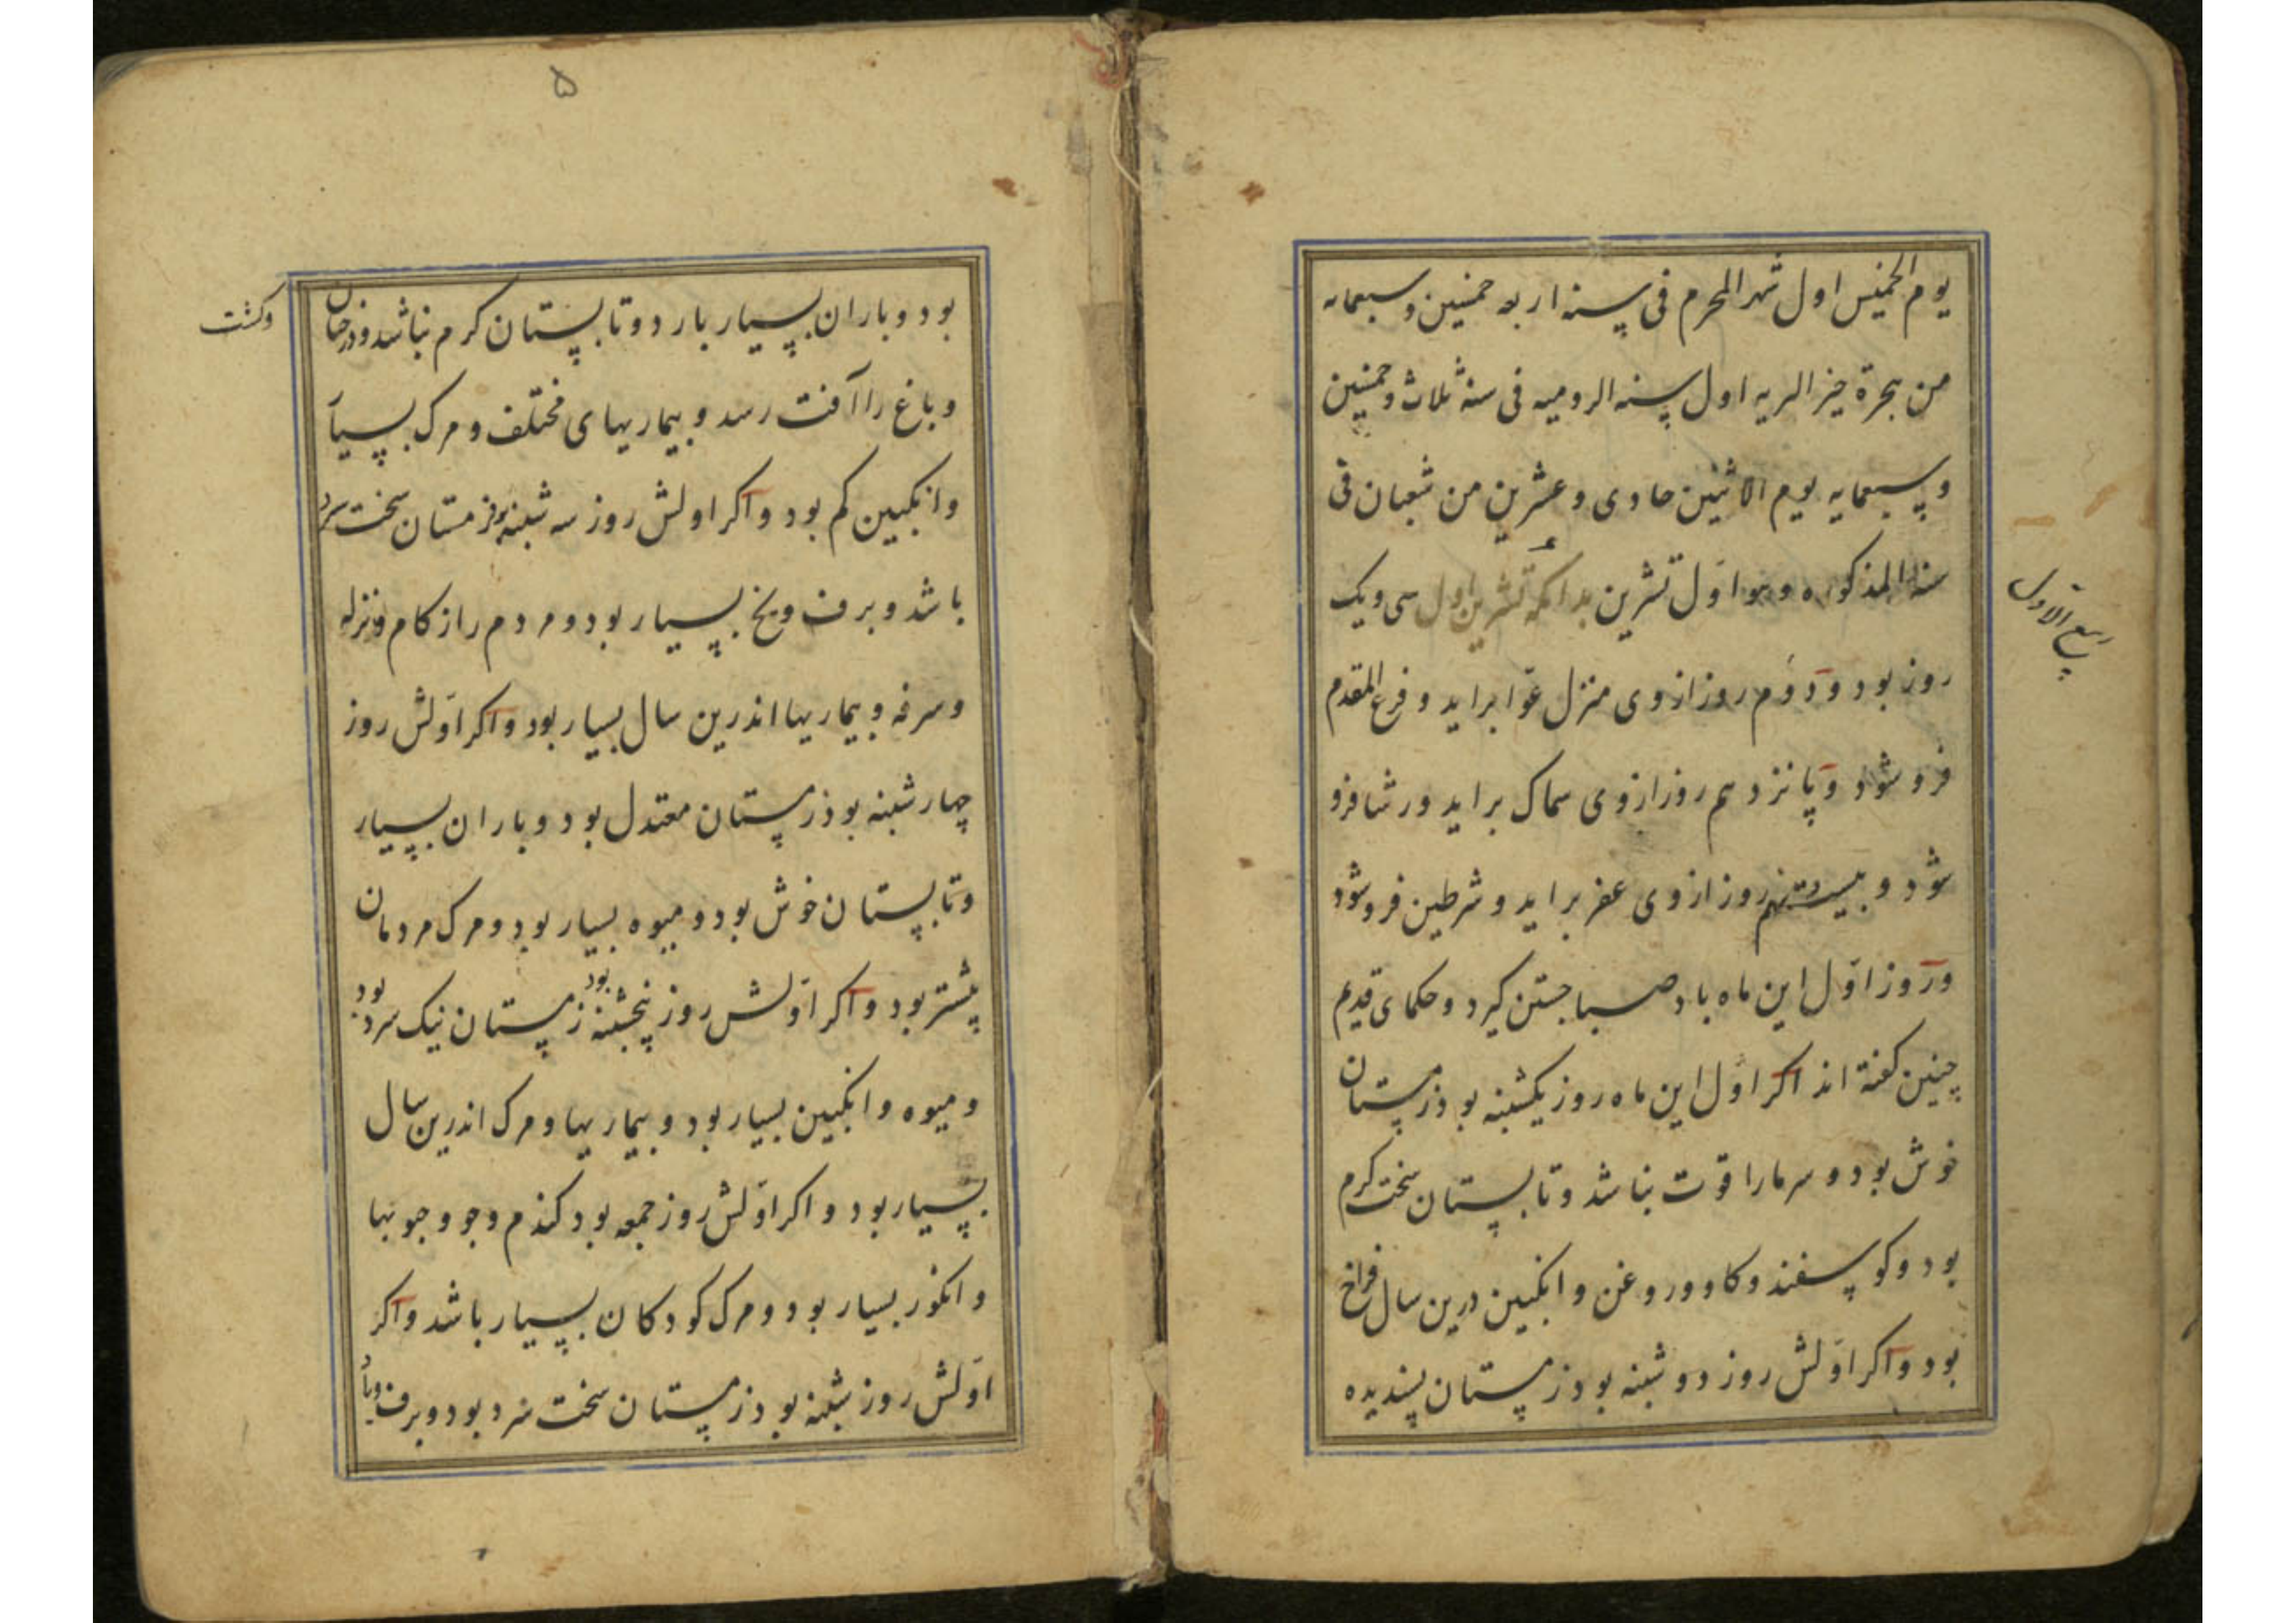 یوم الخمیس اول شهر المحرم فی سنه اربعه خمسین و سبعمایه
من هجرة خیر البریه اول سنه الرومیه فی سنه ثلاث و خمسین
و سبعمایه یوم الاثنین حادی و عشرین من شعبان فی
سنه المذکوره و هو اول تشرین بدانکه تشرین اول سی و یک
ربیع الاول
روز بود و دوم روز از وی منزل عوا براید و فرع المقدم
فرو شود و پانزدهم روز از وی سماک براید و رشا فرو
شود و بیست نهم روز از وی عفر براید و شرطین فرو شود
و روز اول این ماه باد صبا جستن کیرد و حکمای قدیم
چنین کفته اند اکر اول این ماه روز یکشنبه بود زمستان
خوش بود و سرما را قوت نباشد و تابستان سخت کرم
بود و کوسفند و کاو و روغن و انکبین درین سال فراخ
بود و اکر اولش روز دوشنبه بود زمستان پسندیده
۵
بود و باران بسیار بارد و تابستان کرم نباشد و درختان
وکشت
و باغ را آفت رسد و بیماریهای مختلف و مرک بسیار
و انکبین کم بود و اکر اولش روز سه شنبه بود زمستان سخت سرد
باشد و برف و یخ بسیار بود و مردم را زکام و نزله
و سرفه و بیماریها اندرین سال بسیار بود و اکر اولش روز
چهارشنبه بود زمستان معتدل بود و باران بسیار
و تابستان خوش بود و میوه بسیار بود و مرک مردمان
بیشتر بود و اکر اولش روز پنجشنبه بود زمستان نیک سرد بود
و میوه و انکبین بسیار بود و بیماریها و مرک اندرین سال
بسیار بود و اکر اولش روز جمعه بود کندم و جو و حبوبها
و انکور بسیار بود و مرک کودکان بسیار باشد و اکر
اولش روز شنبه بود زمستان سخت سرد بود و برف و باد